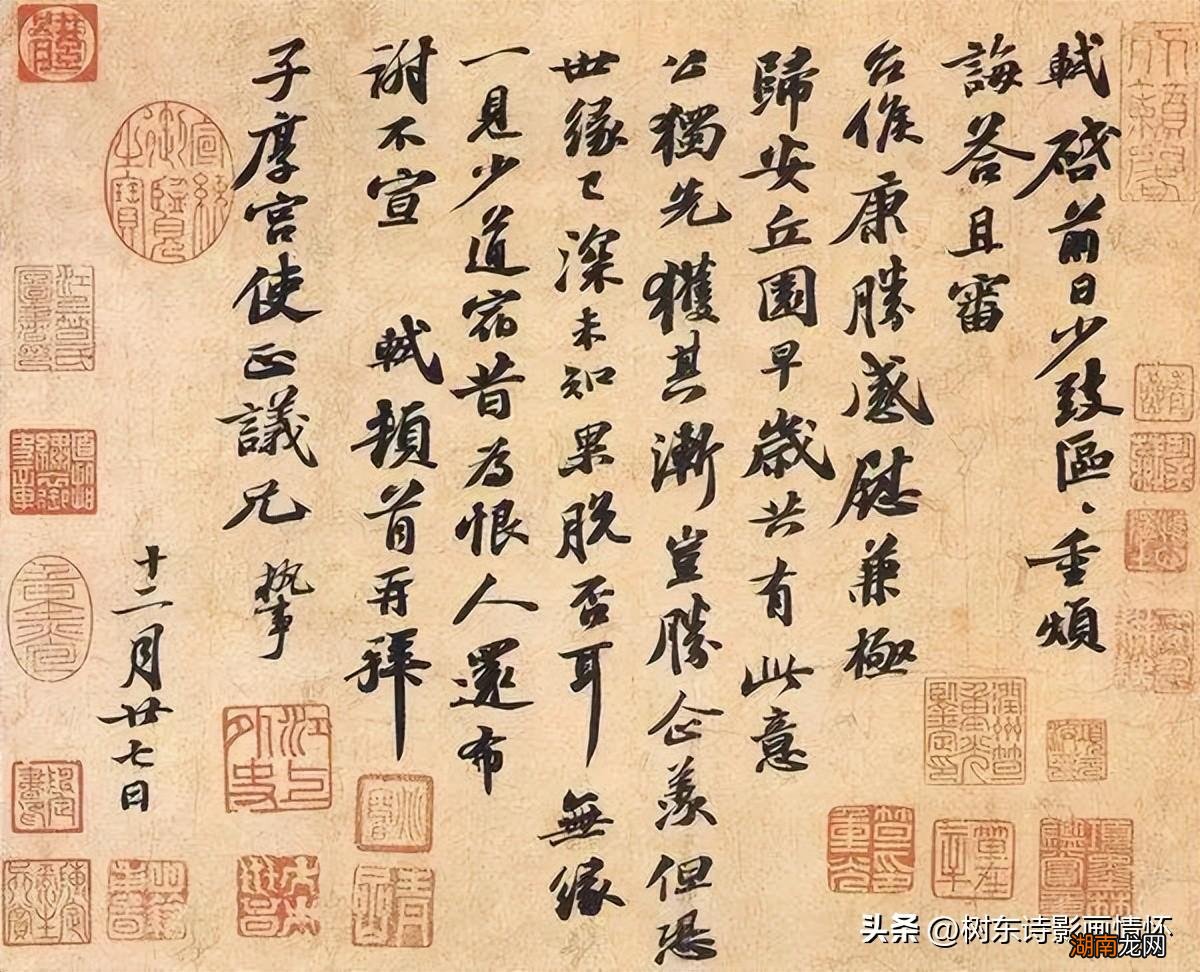 軾啓前日少致區〻重煩
誨荅且審
台候康勝感慰兼極
歸安丘園早歲共有此意
公獨先獲其漸豈勝企羨但恐
世緣已深未知果脫否耳無緣
一見少道宿昔為恨人還布
謝不宣 軾頓首再拜
子厚宮使正議兄執事
十二月廿七日
頭条 @树东诗影画情怀
湖南龙网